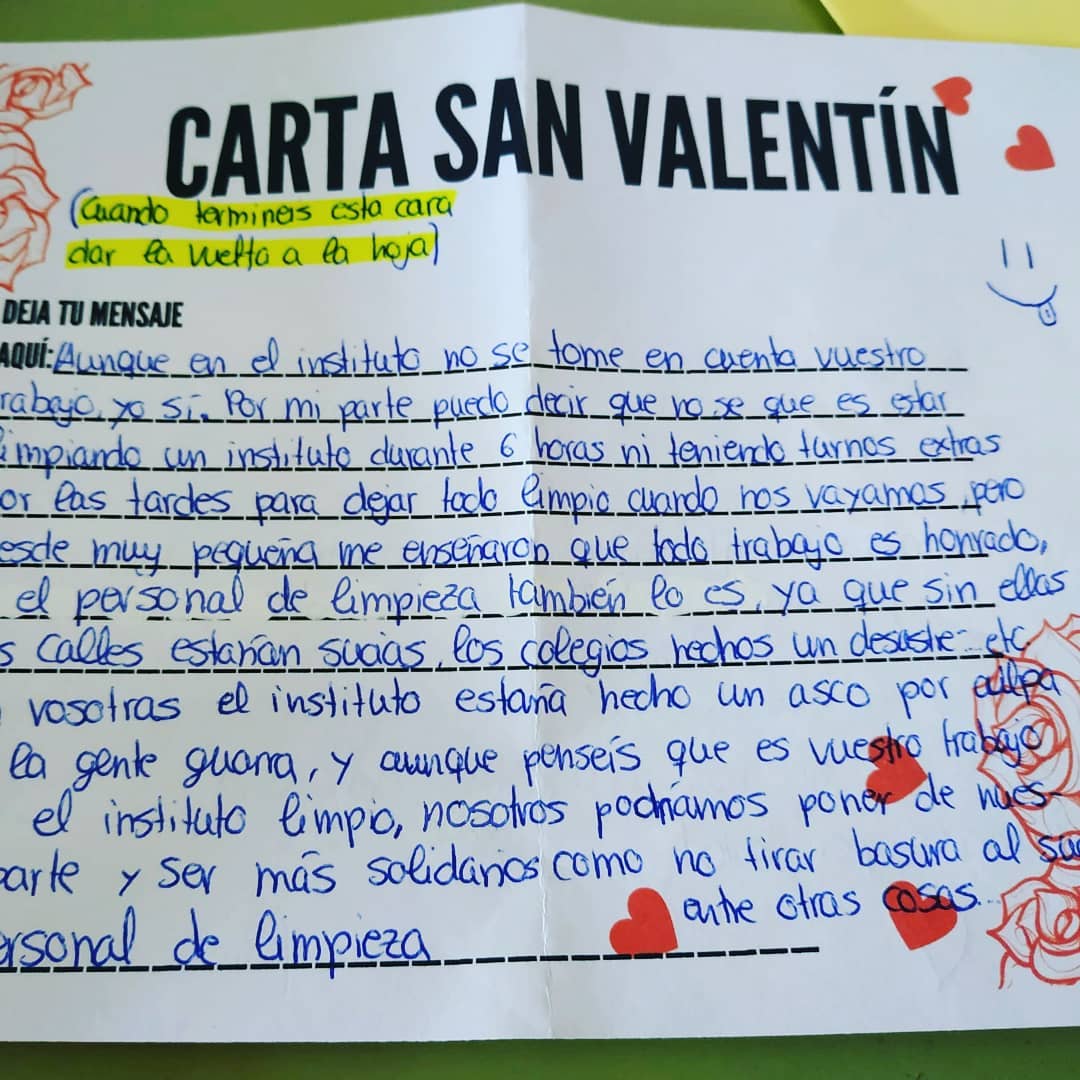 CARTA SAN VALENTÍN
(Cuando termineis esta cara
dar la vuelta a la hoja)
DEJA TU MENSAJE
AQUÍ: Aunque en el instituto no se tome en cuenta vuestro
rabajo, yo sí. Por mi parte puedo decir que no se que es estar
impiando un instituto durante 6 horas ni teniendo turnos extras
or las tardes para dejar todo limpio cuando nos vayamos, pero
esde muy pequeña me enseñaron que todo trabajo es honrado,
el personal de limpieza también lo es, ya que sin ellas
s calles estarían sucias, los colegios hechos un desastre... etc
vosotras el instituto estaría hecho un asco por culpa
la gente guarra, y aunque penseís que es vuestro trabajo
el instituto limpio, nosotros podríamos poner de nues-
parte y ser más solidarios como no tirar basura al sue
entre otras cosas...
ersonal de limpieza